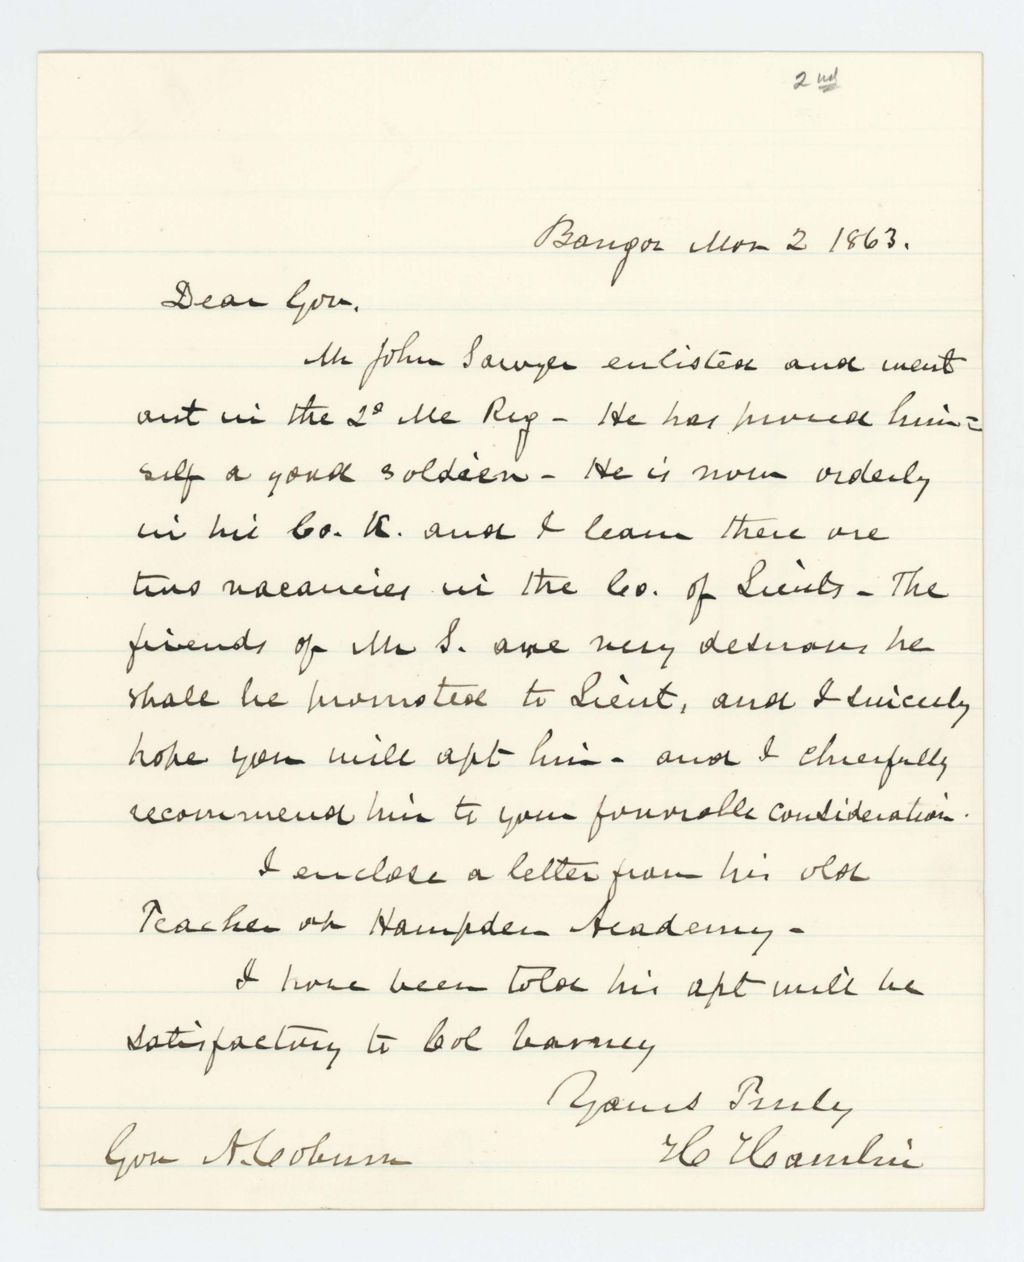 2nd
Bangor Mar 2 1863.
Dear Gov.
Mr John Sawyer enlisted and went
out in the 2d Me Reg - He has proved him=
self a good soldier - He is now orderly
in his Co. K. and I learn there are
two vacancies in the Co. of Lieuts - The
friends of Mr S. are very desirous he
shall be promoted to Lieut, and I sincerely
hope you will apt him - and I cheerfully
recommend him to your favorable consideration.
I enclose a letter from his old
Teacher at Hampden Academy -
I have been told his apt will be
satisfactory to Col Varney
Yours Truly
H Hamlin
Gov A. Coburn